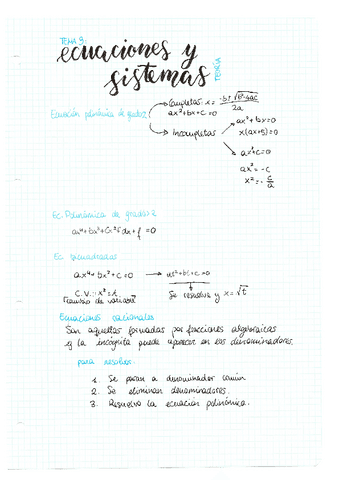 TEMA 3:
ecuaciones y
sistemas
TEORÍA
Ecuación polinómica de grado 2
Completas: x = -b ± √b²-4ac / 2a
ax² + bx + c = 0
Incompletas
ax² + bx = 0
x(ax+b) = 0
ax² + c = 0
ax² = -c
x² = -c/a
Ec. Polinómica de grado > 2
= 0
Ec. bicuadradas
ax⁴ + bx² + c = 0 → at² + bt + c = 0
C.V.: x² = t
Cambio de variable
Se resuelve y x = √t
Ecuaciones racionales
Son aquellas formadas por fracciones algebraicas
y la incógnita puede aparecer en los denominadores.
para resolver:
1. Se pasan a denominador común
2. Se eliminan denominadores.
3. Resuelvo la ecuación polinómica.